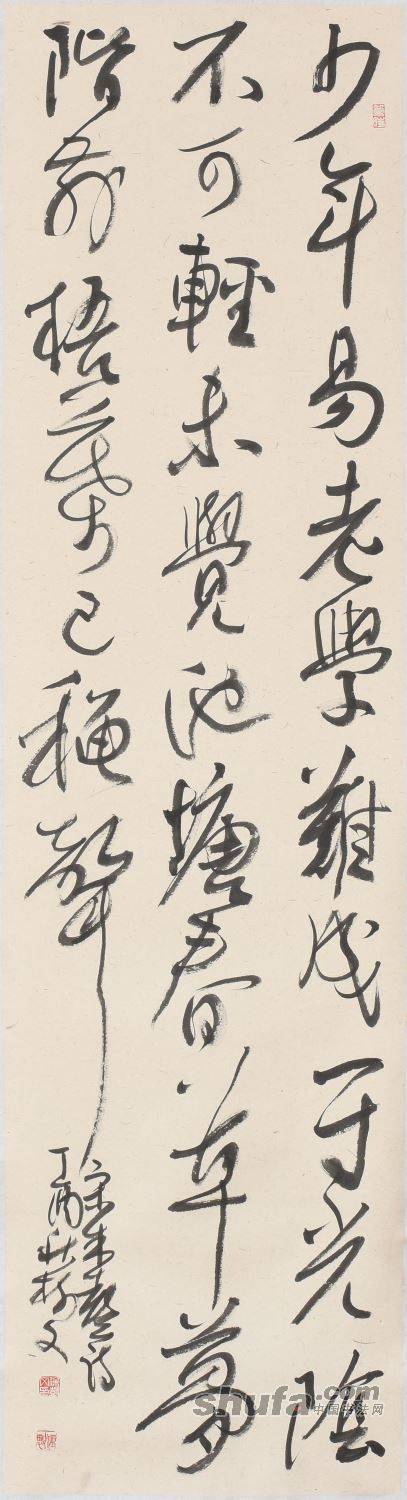 少年易老學難成一寸光陰
不可輕未覺池塘春草夢
階前梧葉已穐聲
宋朱熹詩
丁酉秋
shufa.com
中国书法网